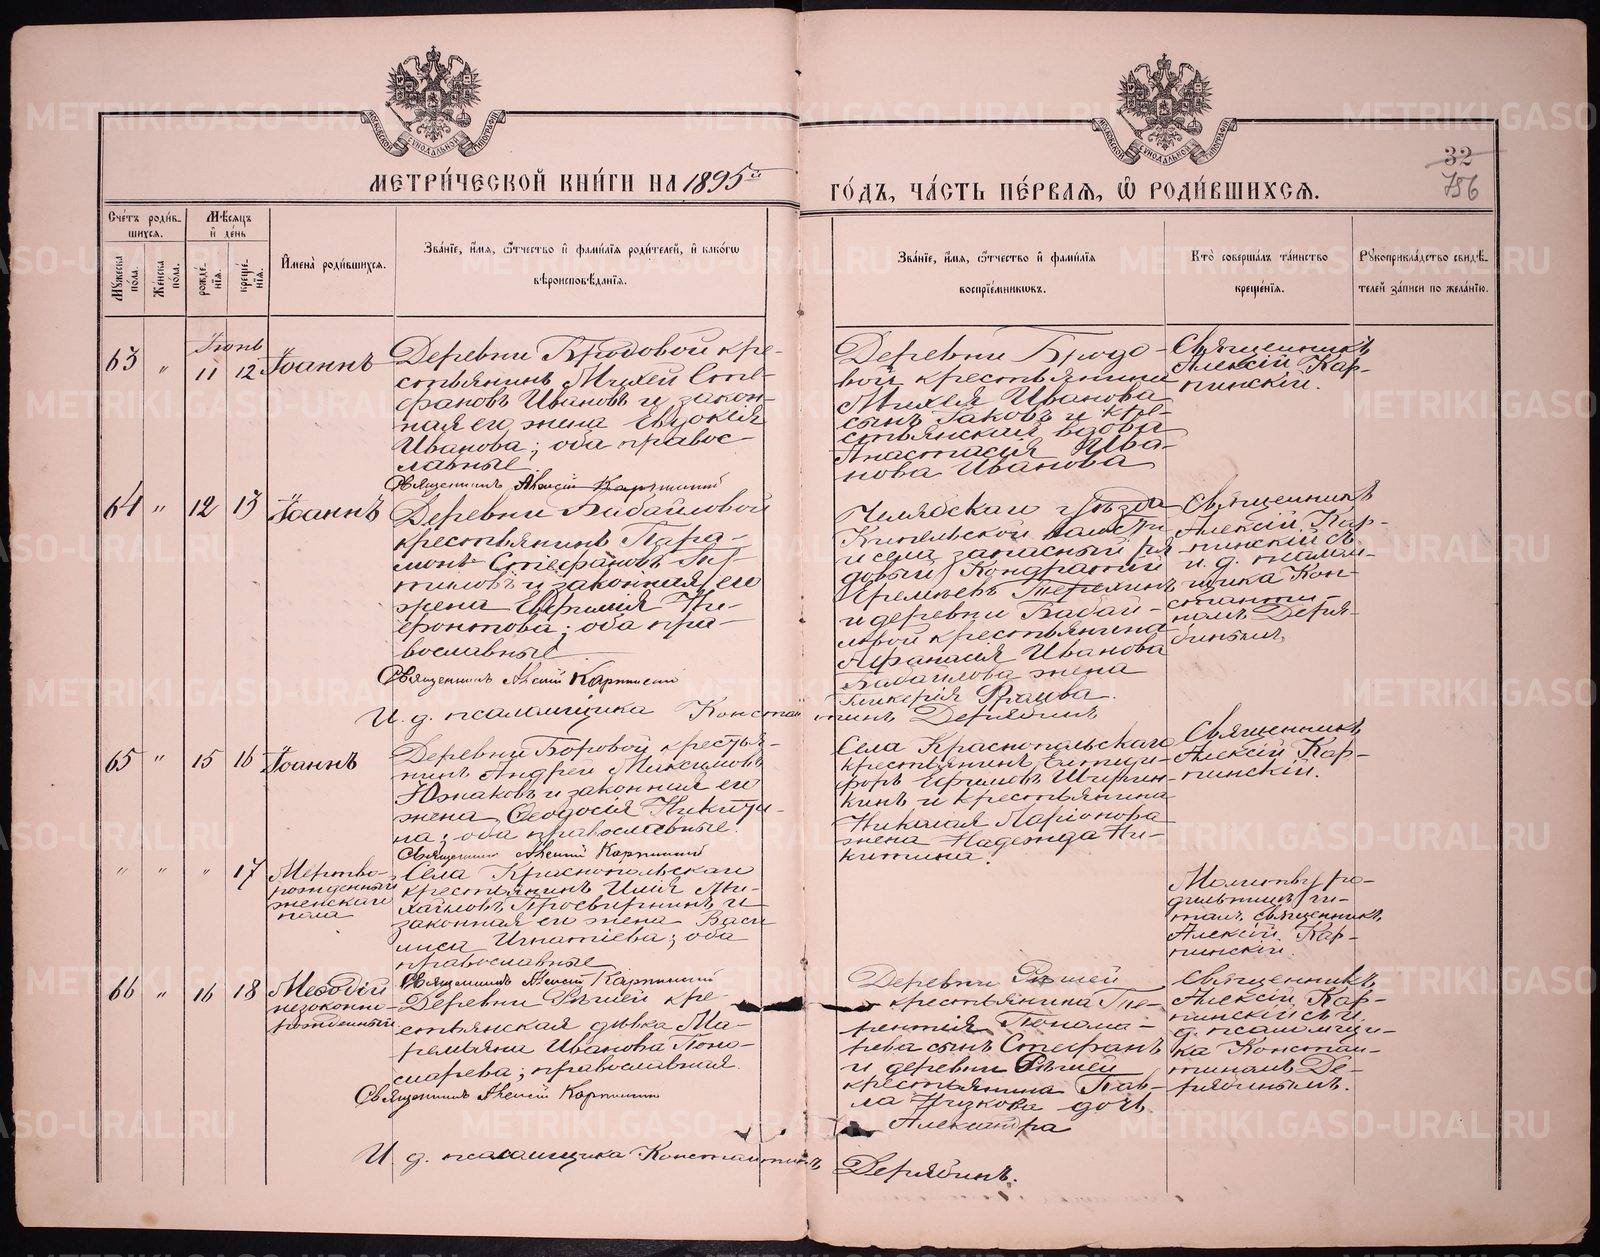 МЕТРИ́ЧЕСКОЙ КНИ́ГИ НА 1895й
ГО́ДЪ, ЧА́СТЬ ПЕ́РВАѦ, Ѽ РОДИ́ВШИХСѦ.
32
786
Сче́тъ роди́в-
шихсѧ.
Мѣ́сѧцъ
и҆ де́нь
Мꙋ́жеска
по́ла.
Же́нска
по́ла.
рожде́-
нїѧ.
креще́-
нїѧ.
И҆мена̀ роди́вшихсѧ.
Зва́нїе, и҆́мѧ, ѻ҆́тчество и҆ фами́лїѧ роди́телей, и҆ како́гѡ
вѣроисповѣ́данїѧ.
Зва́нїе, и҆́мѧ, ѻ҆́тчество и҆ фами́лїѧ
воспрїе́мниковъ.
Кто̀ соверша́лъ та́инство
креще́нїѧ.
Рꙋкоприкла́дство свидѣ́-
телей за́писи по жела́нїю.
Іюнь
63 " 11 12 Іоаннъ
Деревни Бродовой кре-
стьянинъ Михей Сте-
фановъ Ивановъ и закон-
ная его жена Евдокія
Иванова; оба правос-
лавные
Священникъ Алексій Карпинскій
Деревни Бродо-
вой крестьянина
Михея Иванова
сынъ Іаковъ и кре-
стьянская вдова
Анастасія Ива-
нова Иванова
Священникъ
Алексій Кар-
пинскій.
64 " 12 13 Іоаннъ
Деревни Бабайловой
крестьянинъ
Стефановъ
и законная его
жена Евфимія Ни-
фонтова; оба пра-
вославные
Священникъ Алексій Карпинскій
И. д. псаломщика Константинъ Дерябинъ
Челябскаго уѣзда
Кипельской
и села запасный ря-
довый Кондратій
Еремѣевъ
и деревни Бабай-
ловой крестьянина
Афанасія Иванова
Бабайлова жена
Гликерія
Священникъ
Алексій Кар-
пинскій съ
и. д. псалом-
щика Кон-
станти-
номъ Деря-
бинымъ
65 " 15 16 Іоаннъ
Деревни Боровой крестья-
нинъ Андрей Максимовъ
Южаковъ и законная его
жена Ѳеодосія Никити-
на; оба православные.
Священникъ Алексій Карпинскій
Села Краснопольскаго
крестьянинъ
Ефимовъ
и крестьянина
Николая Ларіонова
жена Надежда Ни-
китина.
Священникъ
Алексій Кар-
пинскій.
" " " 17
Мертво-
рожденный
женскаго
пола
Села Краснопольскаго
крестьянинъ Илія Ми-
хайловъ Просвирнинъ и
законная его жена Васи-
лиса Игнатіева; оба
православные
Священникъ Алексій Карпинскій
Молитву ро-
дильницѣ чи-
талъ священникъ
Алексій Кар-
пинскій.
66 " 16 18
Меѳодій
незаконно-
рожденный
Деревни Рѣшей кре-
стьянская дѣвка Ма-
ремьяна Иванова Поно-
марева; православная.
Священникъ Алексій Карпинскій
И. д. псаломщика Константинъ Дерябинъ.
Деревни Рѣшей
крестьянина Те-
рентія Понома-
рева сынъ Стефанъ
и деревни Рѣшей
крестьянина Пав-
ла дочь
Александра
Священникъ
Алексій Кар-
пинскій съ И.
д. псаломщи-
ка Констан-
тиномъ Де-
рябинымъ.
METRIKI.GASO-URAL.RU